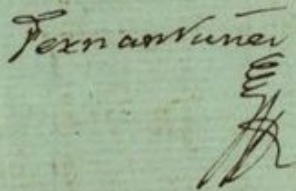 Fernan Nuñez